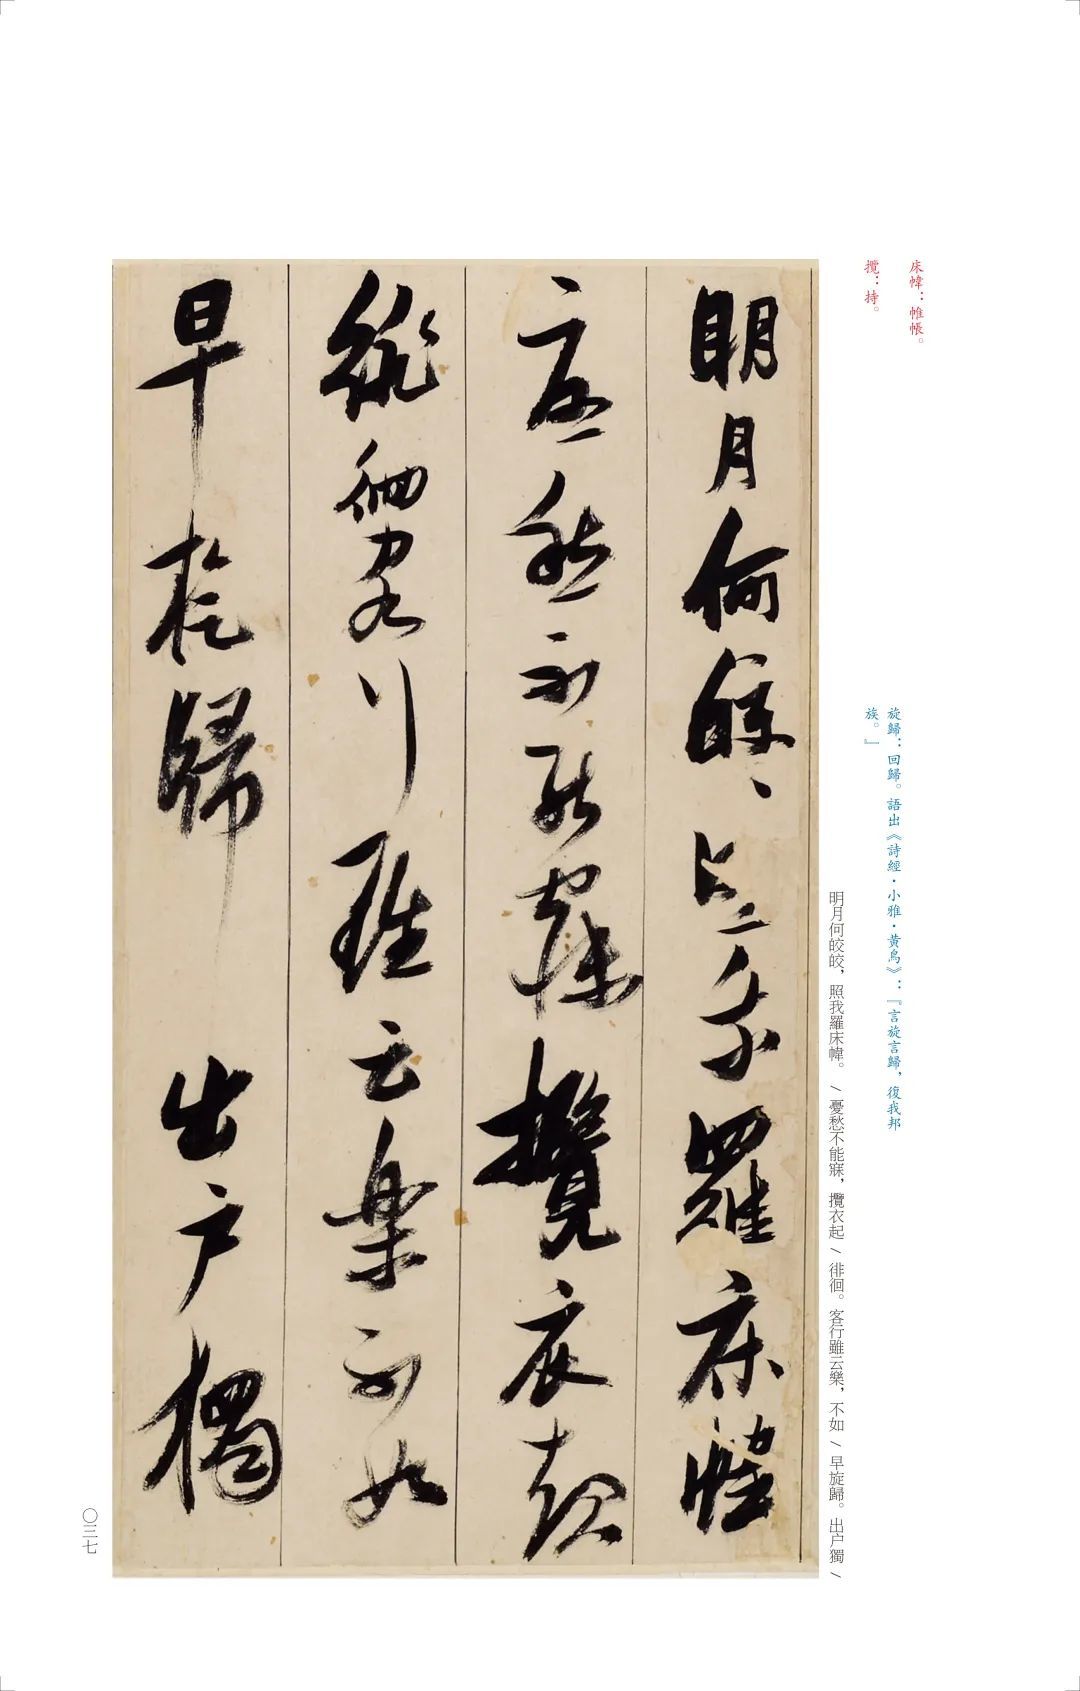 床幃：帷帳。
攬：持。
旋歸：回歸。語出《詩經·小雅·黃鳥》：『言旋言歸，復我邦
族。』
明月何皎皎，照我羅床幃。/憂愁不能寐，攬衣起/徘徊。客行雖云樂，不如/早旋歸。出户獨/
明月何皎〻照我羅床幃
憂愁不能寐攬衣起
徘徊客行雖云樂不如
早旋歸 出户獨
〇三七